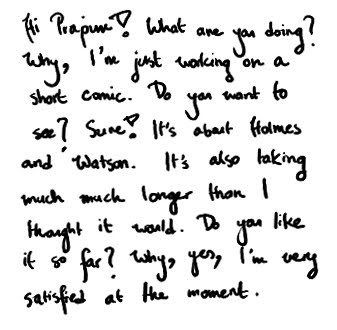 Hi Prapum! What are you doing?
Why, I'm just working on a
short comic. Do you want to
see? Sure! It's about Holmes
and Watson. It's also taking
much much longer than I
thought it would. Do you like
it so far? Why, yes, I'm very
satisfied at the moment.